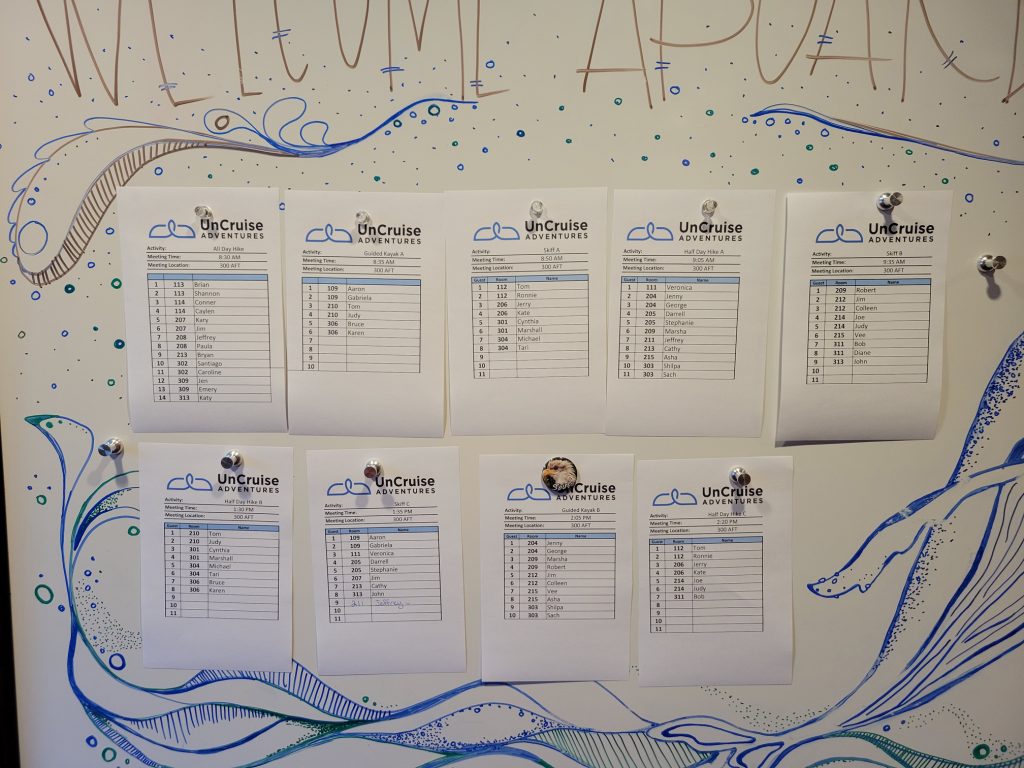 WELCOME ABOARD
UnCruise
ADVENTURES
Activity: All Day Hike
Meeting Time: 8:30 AM
Meeting Location: 300 AFT
1 113 Brian
2 113 Shannon
3 114 Conner
4 114 Caylen
5 207 Kary
6 207 Jim
7 208 Jeffrey
8 208 Paula
9 213 Bryan
10 302 Santiago
11 302 Caroline
12 309 Jen
13 309 Emery
14 313 Katy
UnCruise
ADVENTURES
Activity: Guided Kayak A
Meeting Time: 8:35 AM
Meeting Location: 300 AFT
Guest Room Name
1 109 Aaron
2 109 Gabriela
3 210 Tom
4 210 Judy
5 306 Bruce
6 306 Karen
7
8
9
10
UnCruise
ADVENTURES
Activity: Skiff A
Meeting Time: 8:50 AM
Meeting Location: 300 AFT
Guest Room Name
1 112 Tom
2 112 Ronnie
3 206 Jerry
4 206 Kate
5 301 Cynthia
6 301 Marshall
7 304 Michael
8 304 Tari
9
10
11
UnCruise
ADVENTURES
Activity: Half Day Hike A
Meeting Time: 9:05 AM
Meeting Location: 300 AFT
Guest Room Name
1 111 Veronica
2 204 Jenny
3 204 George
4 205 Darrell
5 205 Stephanie
6 209 Marsha
7 211 Jeffrey
8 213 Cathy
9 215 Asha
10 303 Shilpa
11 303 Sach
UnCruise
ADVENTURES
Activity: Skiff B
Meeting Time: 9:35 AM
Meeting Location: 300 AFT
Guest Room Name
1 209 Robert
2 212 Jim
3 212 Colleen
4 214 Joe
5 214 Judy
6 215 Vee
7 311 Bob
8 311 Diane
9 313 John
10
11
UnCruise
ADVENTURES
Activity: Half Day Hike B
Meeting Time: 1:30 PM
Meeting Location: 300 AFT
Guest Room Name
1 210 Tom
2 210 Judy
3 301 Cynthia
4 301 Marshall
5 304 Michael
6 304 Tari
7 306 Bruce
8 306 Karen
9
10
11
UnCruise
ADVENTURES
Activity: Skiff C
Meeting Time: 1:35 PM
Meeting Location: 300 AFT
Guest Room Name
1 109 Aaron
2 109 Gabriela
3 111 Veronica
4 205 Darrell
5 205 Stephanie
6 207 Jim
7 213 Cathy
8 313 John
9 211 Jeffrey
10
11
UnCruise
ADVENTURES
Activity: Guided Kayak B
Meeting Time: 2:05 PM
Meeting Location: 300 AFT
Guest Room Name
1 204 Jenny
2 204 George
3 209 Marsha
4 209 Robert
5 212 Jim
6 212 Colleen
7 215 Vee
8 215 Asha
9 303 Shilpa
10 303 Sach
UnCruise
ADVENTURES
Activity: Half Day Hike C
Meeting Time: 2:20 PM
Meeting Location: 300 AFT
Guest Room Name
1 112 Tom
2 112 Ronnie
3 206 Jerry
4 206 Kate
5 214 Joe
6 214 Judy
7 311 Bob
8
9
10
11